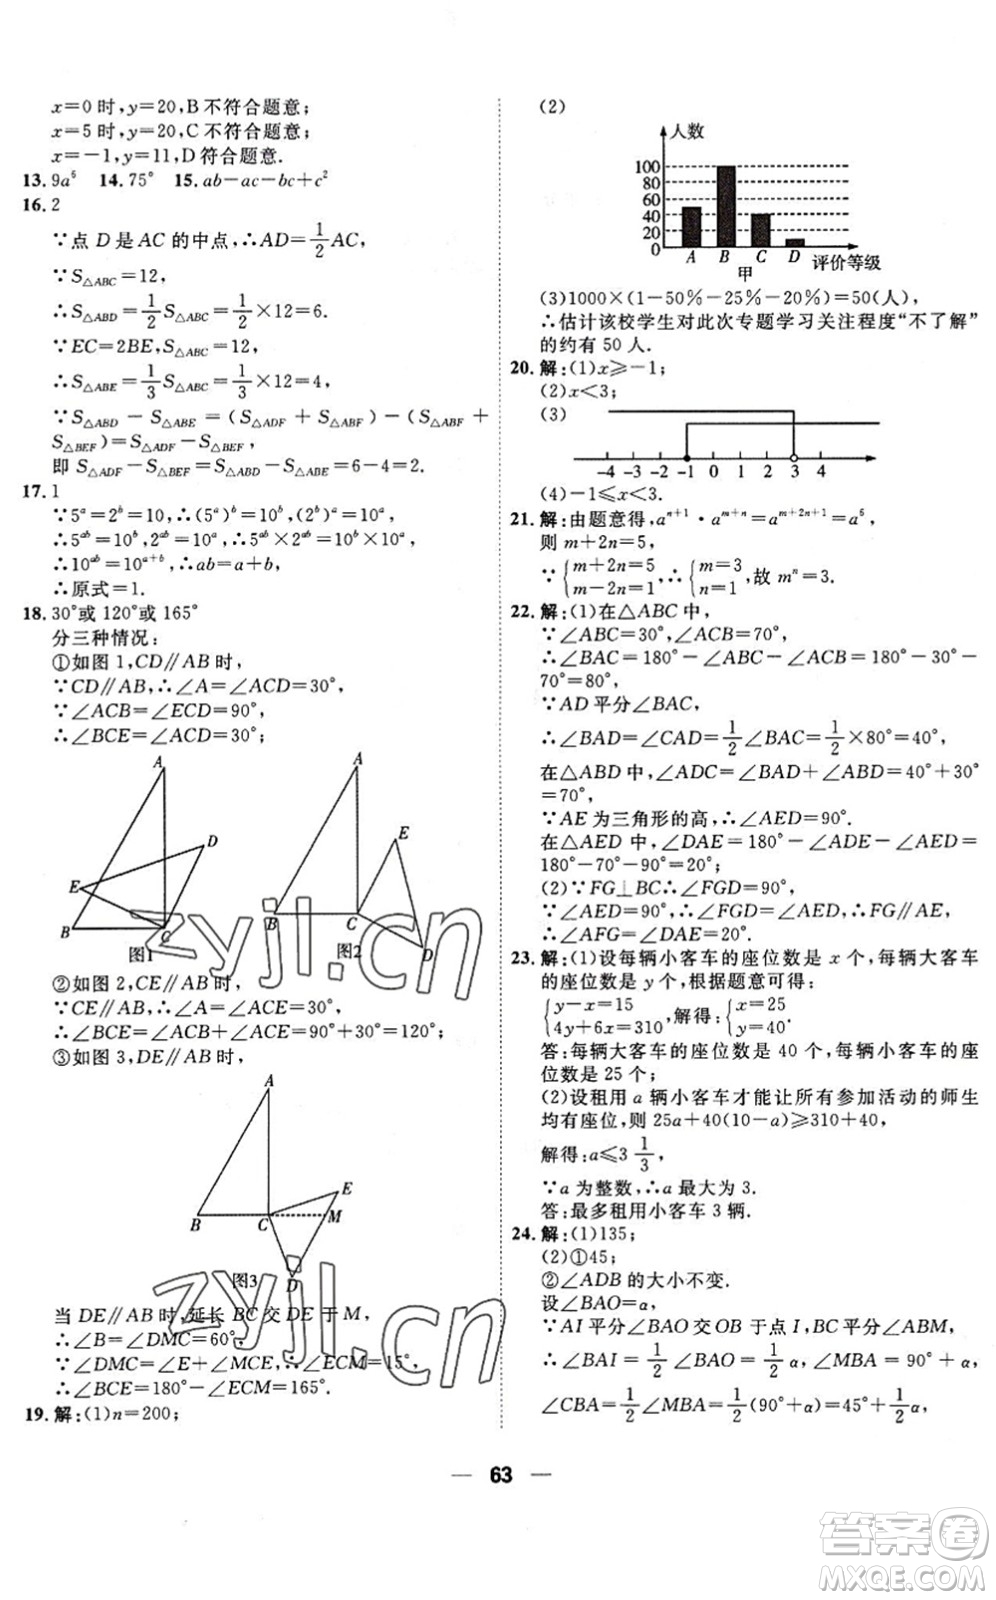 x=0时,y=20,B不符合题意;
x=5时,y=20,C不符合题意;
x=-1,y=11,D符合题意.
13. 9a⁶ 14. 75° 15. ab-ac-bc+c²
16. 2
∵点D是AC的中点,∴AD=1/2AC,
∵S△ABC=12,
∴S△ABD=1/2S△ABC=1/2×12=6.
∵EC=2BE,S△ABC=12,
∴S△ABE=1/3S△ABC=1/3×12=4,
∵S△ABD-S△ABE=(S△ADF+S△ABF)-(S△ABF+
S△BEF)=S△ADF-S△BEF,
即S△ADF-S△BEF=S△ABD-S△ABE=6-4=2.
17. 1
∵5ᵃ=2ᵇ=10,∴(5ᵃ)ᵇ=10ᵇ,(2ᵇ)ᵃ=10ᵃ,
∴5ᵃᵇ=10ᵇ,2ᵃᵇ=10ᵃ,∴5ᵃᵇ×2ᵃᵇ=10ᵇ×10ᵃ,
∴10ᵃᵇ=10ᵃ⁺ᵇ,∴ab=a+b,
∴原式=1.
18. 30°或120°或165°
分三种情况:
①如图1,CD∥AB时,
∵CD∥AB,∴∠A=∠ACD=30°,
∵∠ACB=∠ECD=90°,
∴∠BCE=∠ACD=30°;
A
D
E
B
C
图1
A
E
B
C
D
图2
②如图2,CE∥AB时,
∵CE∥AB,∴∠A=∠ACE=30°,
∴∠BCE=∠ACB+∠ACE=90°+30°=120°;
③如图3,DE∥AB时,
A
E
B
C
M
D
图3
当DE∥AB时,延长BC交DE于M,
∴∠B=∠DMC=60°,
∵∠DMC=∠E+∠ECM,∴∠ECM=15°,
∴∠BCE=180°-∠ECM=165°.
19. 解:(1)n=200;
(2)
人数
100
80
60
40
20
0
A B C D 评价等级
甲
(3)1000×(1-50%-25%-20%)=50(人),
∴估计该校学生对此次专题学习关注程度“不了解”
的约有50人.
20. 解:(1)x≥-1;
(2)x<3;
(3)
-4 -3 -2 -1 0 1 2 3 4
(4)-1≤x<3.
21. 解:由题意得,aⁿ⁺¹·aᵐ⁺ⁿ=aᵐ⁺²ⁿ⁺¹=a⁶,
则m+2n=5,
∵{m+2n=5 m-2n=1,∴{m=3 n=1,故mⁿ=3.
22. 解:(1)在△ABC中,
∵∠ABC=30°,∠ACB=70°,
∴∠BAC=180°-∠ABC-∠ACB=180°-30°-
70°=80°,
∵AD平分∠BAC,
∴∠BAD=∠CAD=1/2∠BAC=1/2×80°=40°,
在△ABD中,∠ADC=∠BAD+∠ABD=40°+30°
=70°,
∵AE为三角形的高,∴∠AED=90°.
在△AED中,∠DAE=180°-∠ADE-∠AED=
180°-70°-90°=20°;
(2)∵FG⊥BC∴∠FGD=90°,
∵∠AED=90°,∴∠FGD=∠AED,∴FG∥AE,
∴∠AFG=∠DAE=20°.
23. 解:(1)设每辆小客车的座位数是x个,每辆大客车
的座位数是y个,根据题意可得:
{y-x=15 4y+6x=310,解得:{x=25 y=40.
答:每辆大客车的座位数是40个,每辆小客车的座
位数是25个;
(2)设租用a辆小客车才能让所有参加活动的师生
均有座位,则25a+40(10-a)≥310+40,
解得:a≤3 1/3,
∵a为整数,∴a最大为3.
答:最多租用小客车3辆.
24. 解:(1)135;
(2)①45;
②∠ADB的大小不变.
设∠BAO=α,
∵AI平分∠BAO交OB于点I,BC平分∠ABM,
∴∠BAI=1/2∠BAO=1/2α,∠MBA=90°+α,
∠CBA=1/2∠MBA=1/2(90°+α)=45°+1/2α,
— 63 —
zyjl.cn
zyjl.cn
答案卷
MXQE.COM